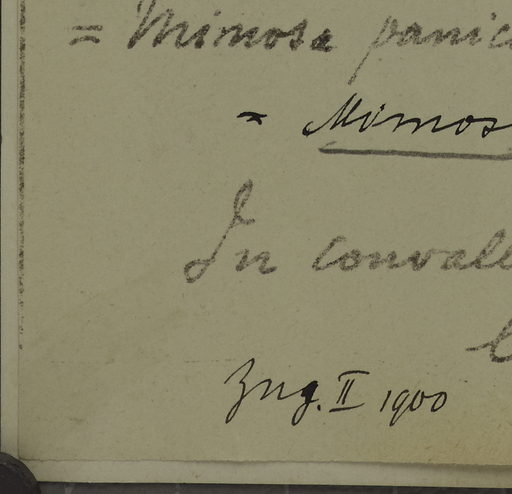 = Mimosa panic
= Mimos
In convall
Zug. II 1900